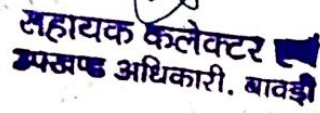 सहायक कलेक्टर एवं
उपखण्ड अधिकारी. बावड़ी